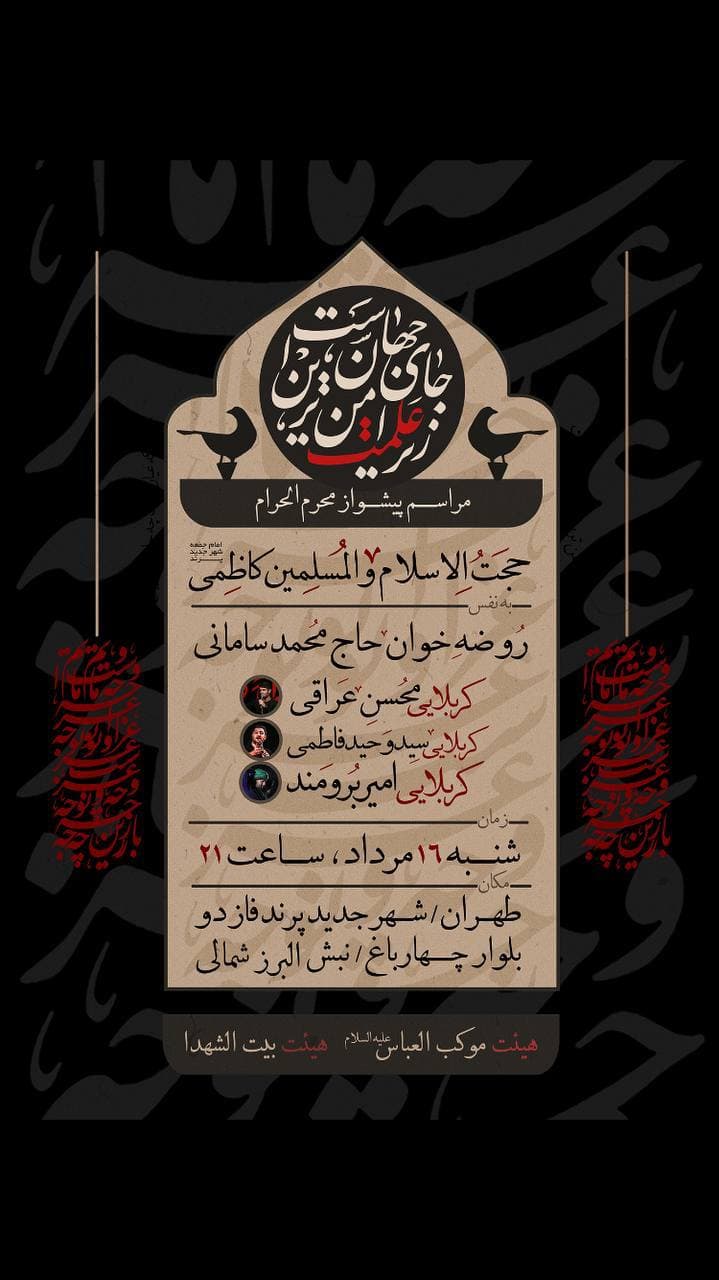 زیر علمت امن ترین جای جهان است
مراسم پیشواز محرم الحرام
حجت الاسلام و المسلمین کاظمی
امام جمعه
شهر جدید
پرند
به نفس
روضه خوان حاج محمد سامانی
کربلایی محسن عراقی
کربلایی سید وحید فاطمی
کربلایی امیر برومند
زمان
شنبه ۱۶ مرداد، ساعت ۲۱
مکان
طهران / شهر جدید پرند فاز دو
بلوار چهارباغ / نبش البرز شمالی
هیئت موکب العباس علیه السلام هیئت بیت الشهدا